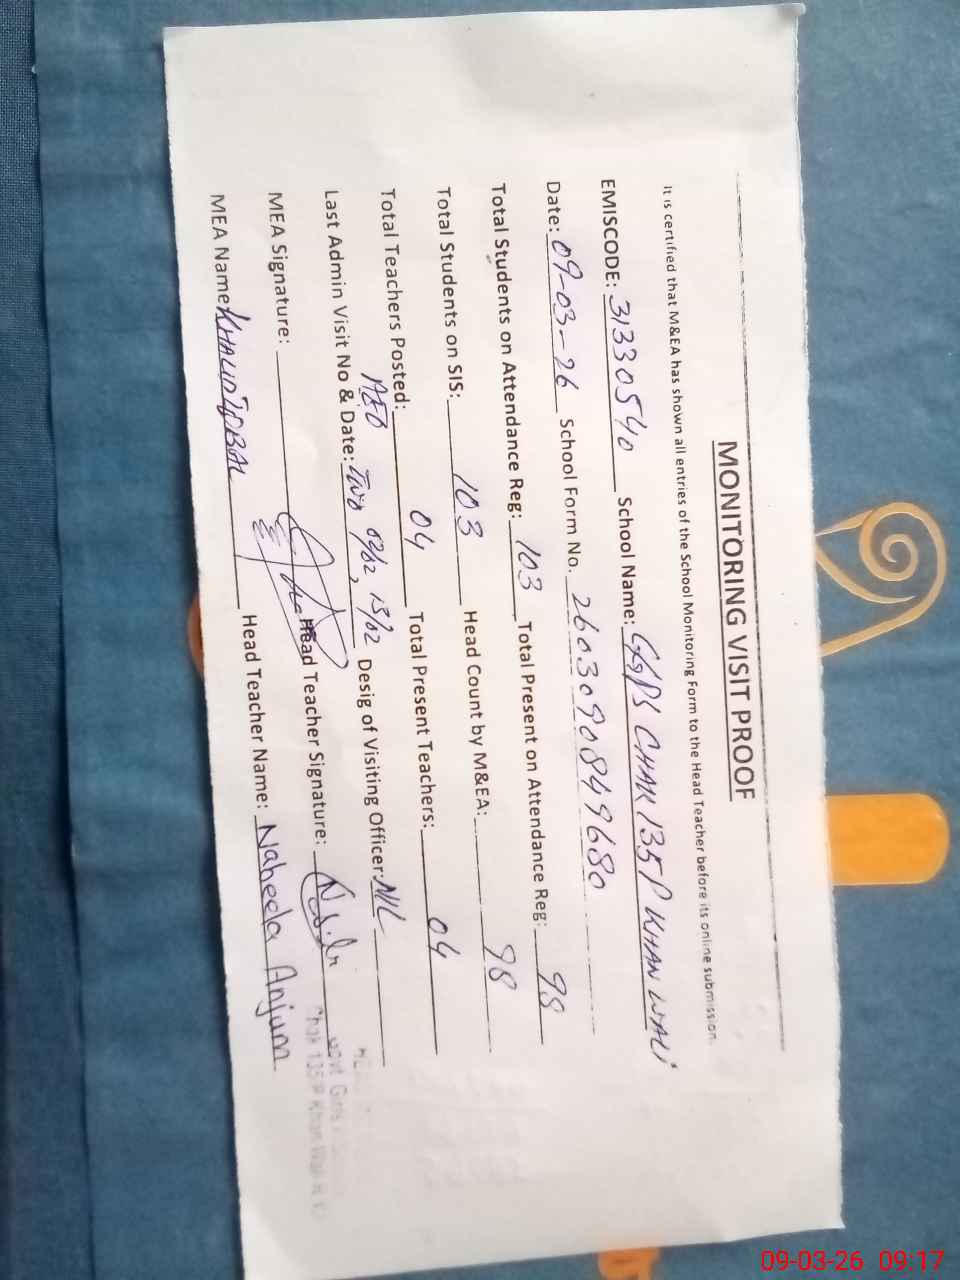 MONITORING VISIT PROOF
It is certified that M&EA has shown all entries of the School Monitoring Form to the Head Teacher before its online submission.
EMISCODE: 31330540 School Name: GGPS CHAK 135P KHAN WALI
Date: 09-03-26 School Form No. 26030908449680
Total Students on Attendance Reg: 103 Total Present on Attendance Reg: 98
Total Students on SIS: 103 Head Count by M&EA: 98
Total Teachers Posted: 04 Total Present Teachers: 04
AEO
Last Admin Visit No & Date: Two 02/02, 13/02 Desig of Visiting Officer: NIL
MEA Signature: Head Teacher Signature:
MEA Name: KHALID IQBAL Head Teacher Name: Naheela Anjum
Govt Girls
Chak 135 P Khan Wali
09-03-26 09:17